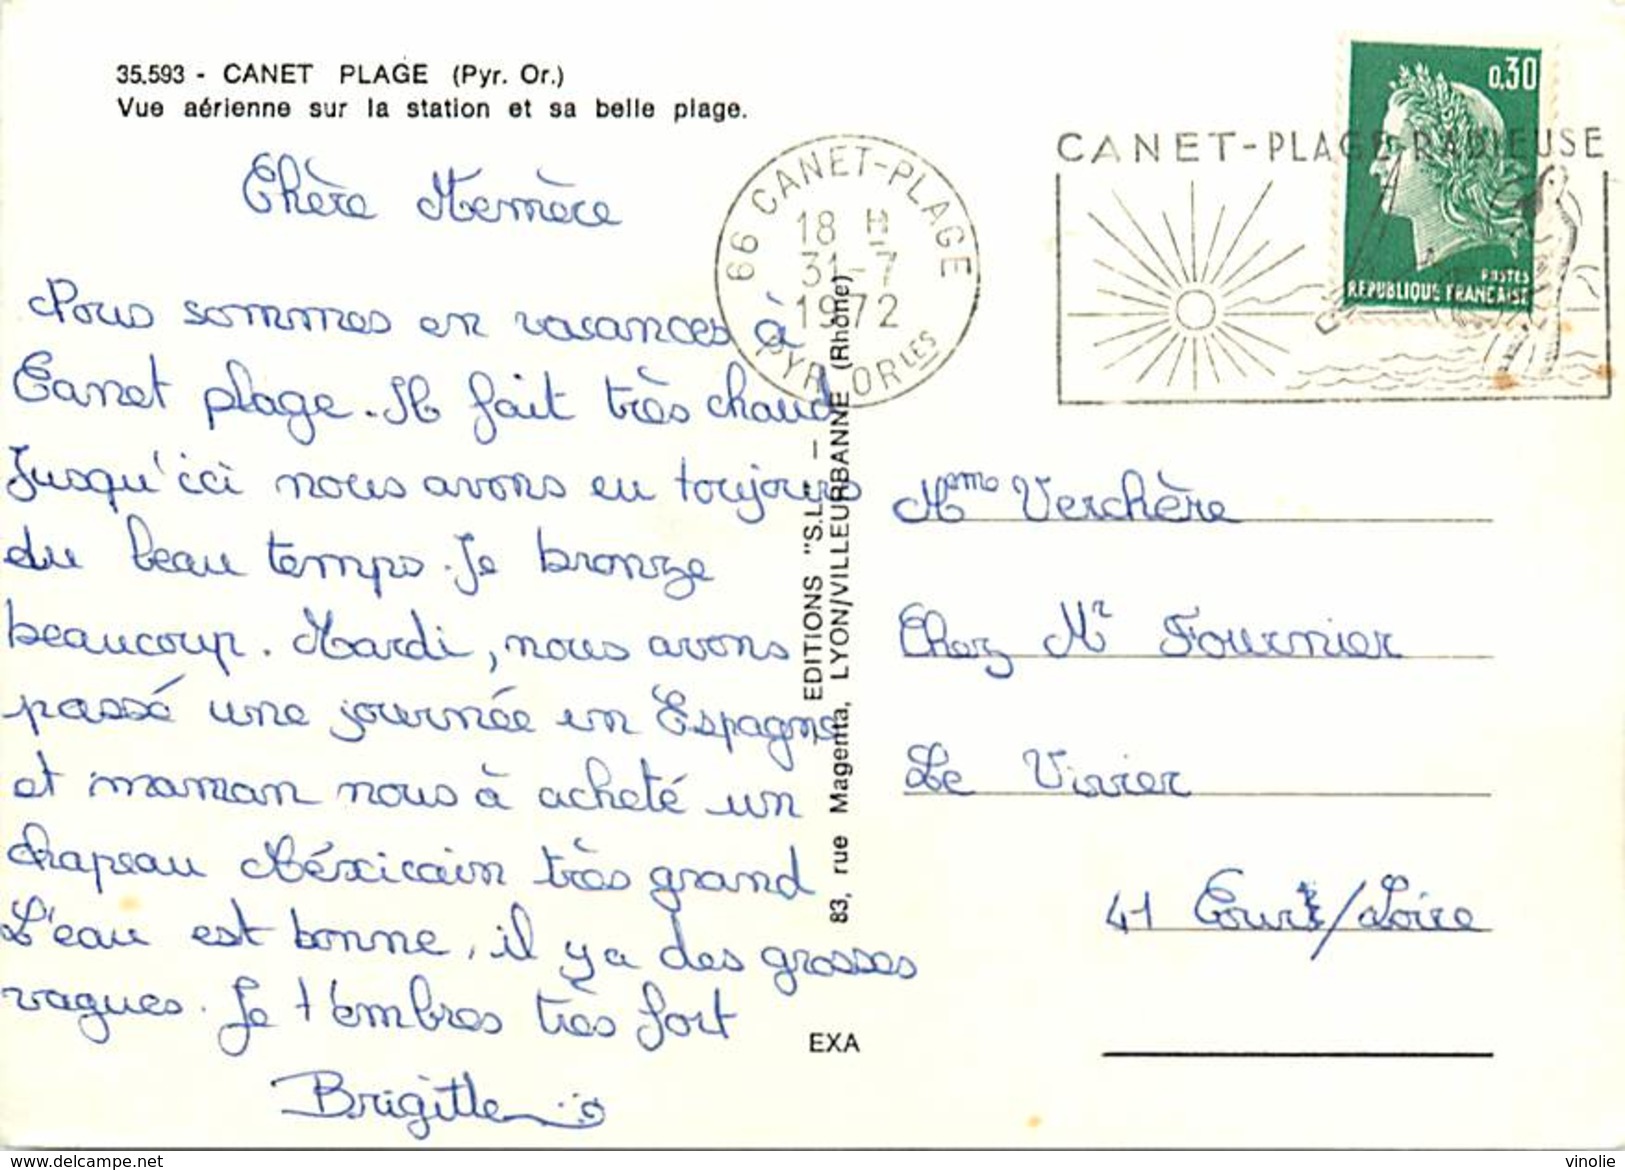 35.593 - CANET PLAGE (Pyr. Or.)
Vue aérienne sur la station et sa belle plage.
Chère Mémère
Nous sommes en vacances à
Canet plage. Il fait très chaud
Jusqu'ici nous avons eu toujours
du beau temps. Je bronze
beaucoup. Mardi, nous avons
passé une journée en Espagne
et maman nous à acheté un
chapeau Méxicain très grand
L'eau est bonne, il y a des grosses
vagues. Je t'embres très fort
Brigitte
66 CANET-PLAGE
18 H
31-7
1972
PYR. ORLES
CANET-PLAGE RADIEUSE
0,30
POSTES
REPUBLIQUE FRANCAISE
EDITIONS "S.L." —
83, rue Magenta, LYON/VILLEURBANNE (Rhône)
EXA
Mme Verchère
Chez Mr Fournier
Le Vivier
41 Cour/Loire
vinolie
www.delcampe.net